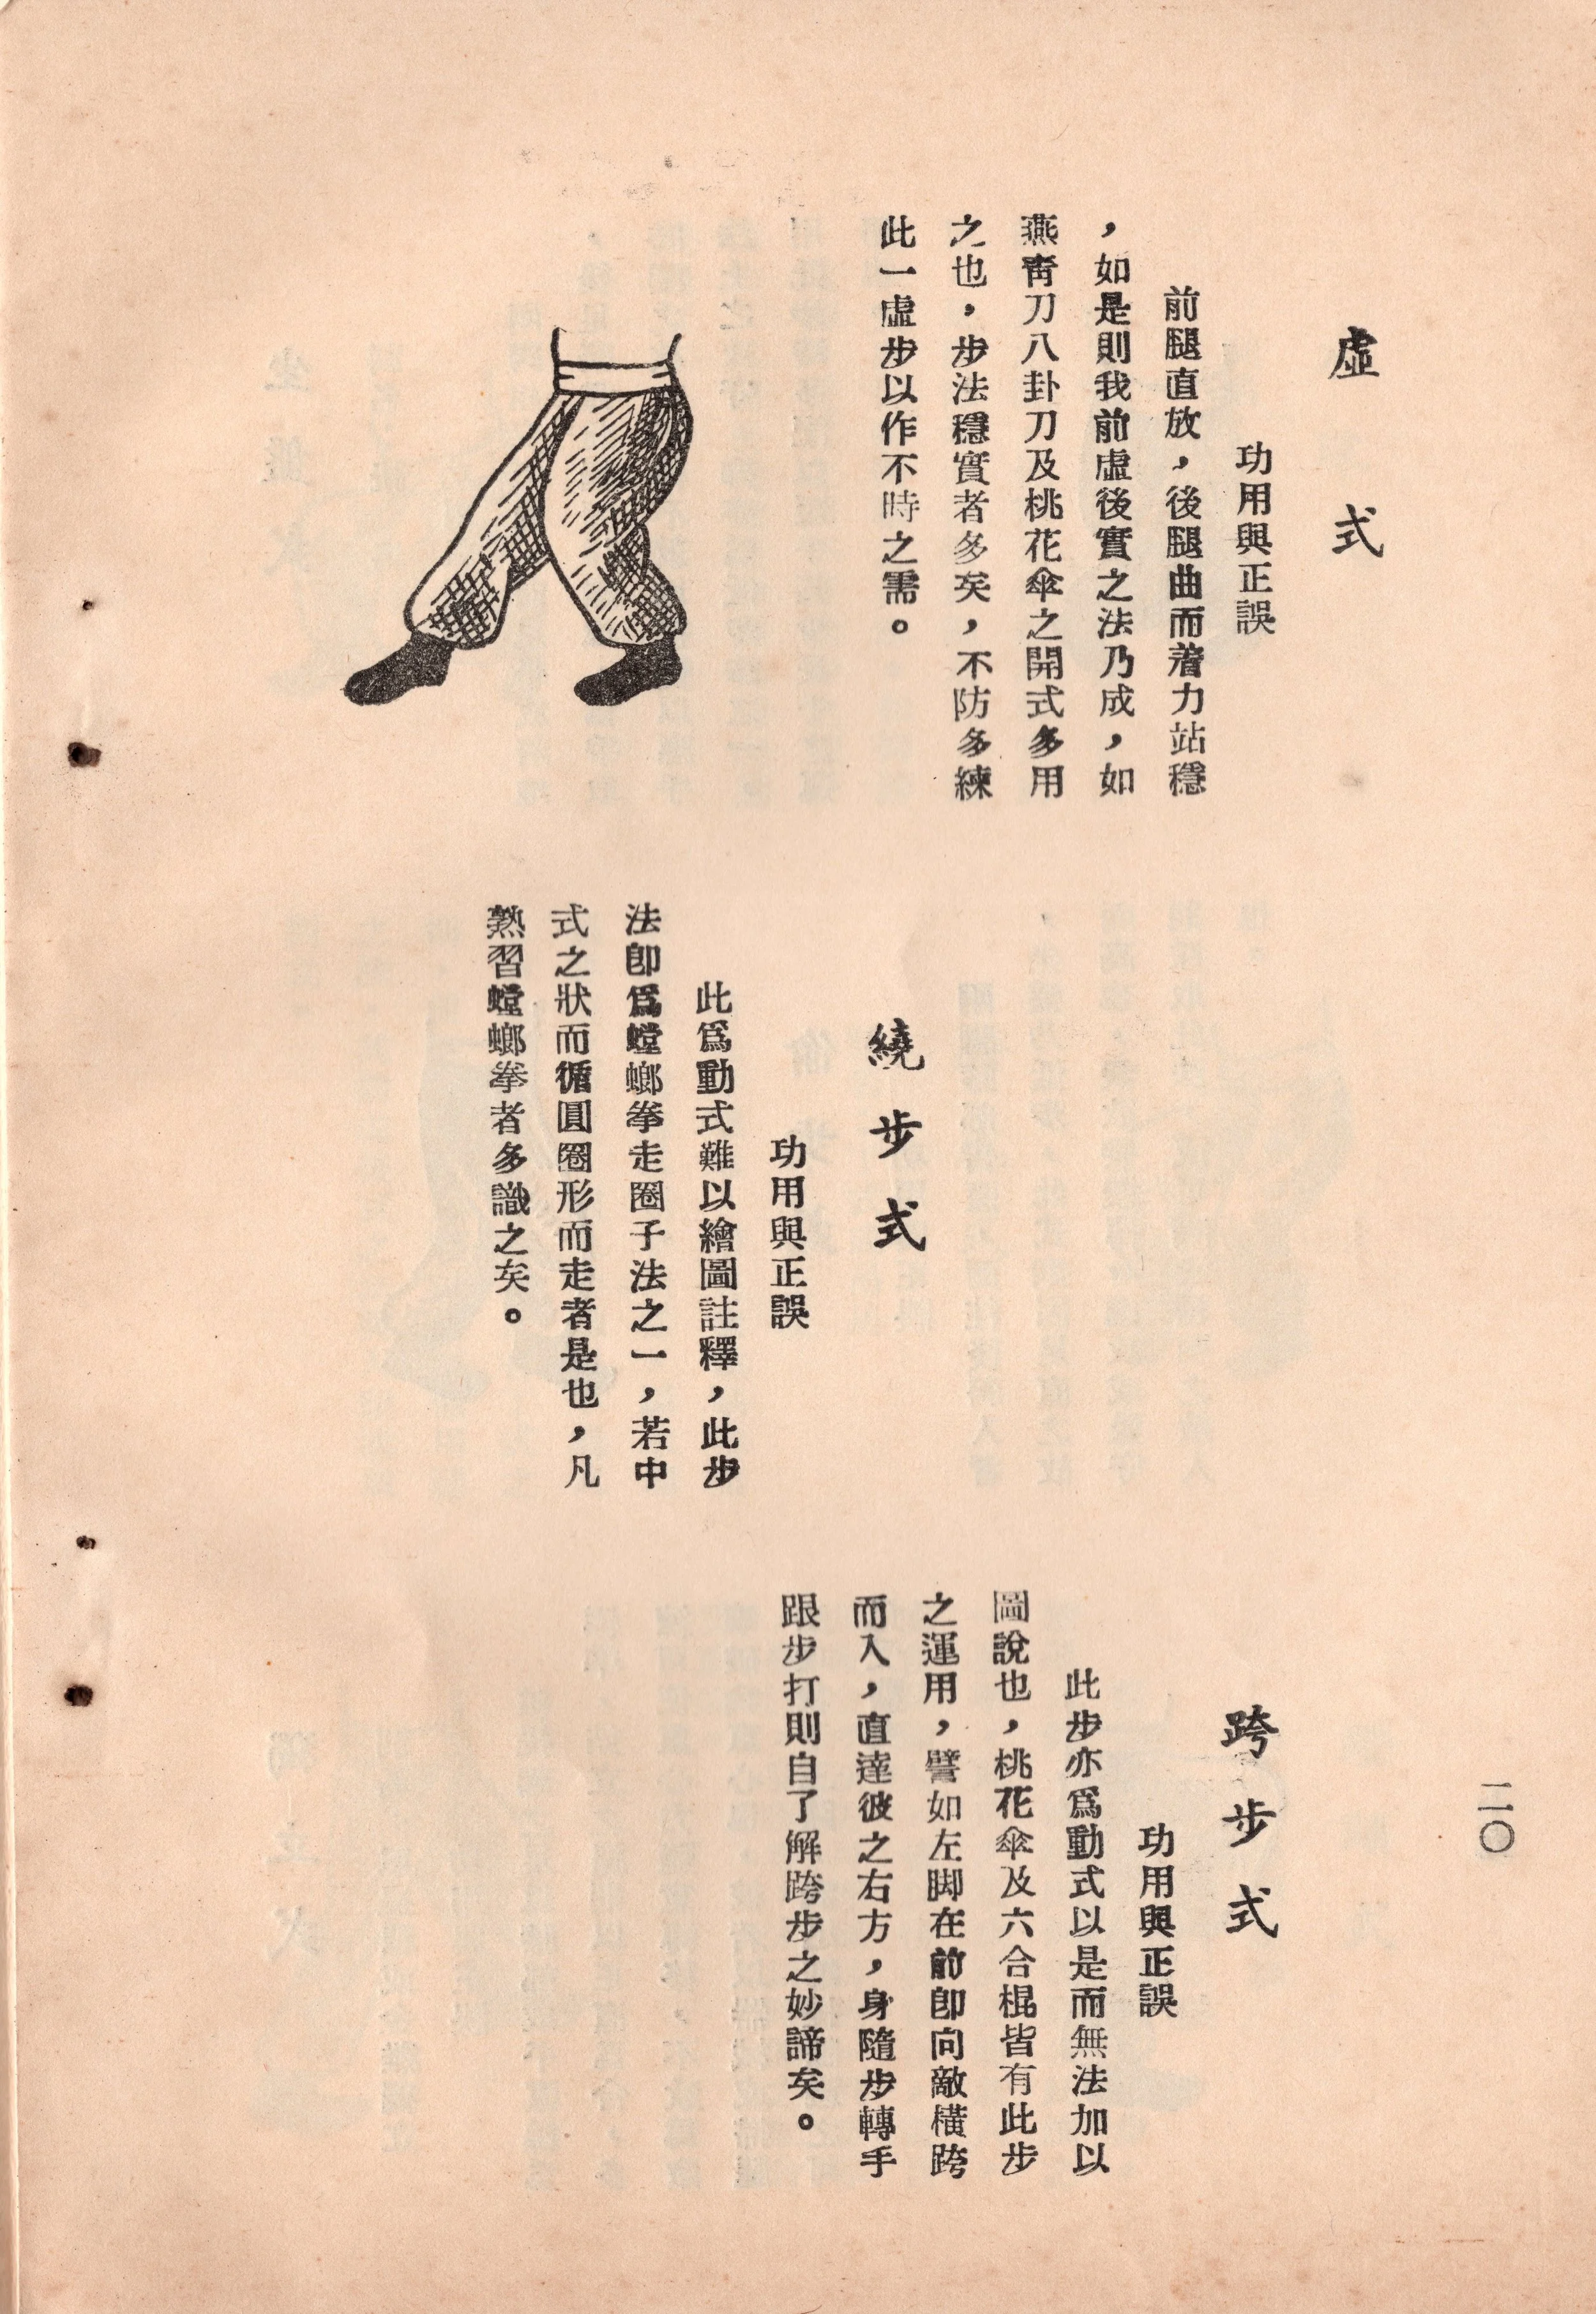 虛式
功用與正誤
前腿直放，後腿曲而着力站穩
，如是則我前虛後實之法乃成，如
燕靑刀八卦刀及桃花傘之開式多用
之也，步法穩實者多矣，不防多練
此一虛步以作不時之需。
繞步式
功用與正誤
此爲動式難以繪圖註釋，此步
法卽爲螳螂拳走圈子法之一，若中
式之狀而循圓圈形而走者是也，凡
熟習螳螂拳者多識之矣。
跨步式
功用與正誤
此步亦爲動式以是而無法加以
圖說也，桃花傘及六合棍皆有此步
之運用，譬如左脚在前卽向敵橫跨
而入，直達彼之右方，身隨步轉手
跟步打則自了解跨步之妙諦矣。
二〇